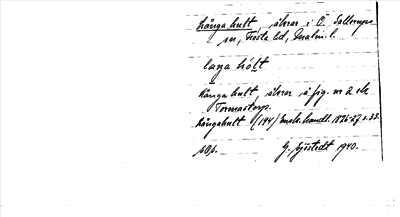 Långa hult åkrar i Ö. Sallerups
sn, Frosta hd, Malm. l.
laŋa hólt
Långa hult, åkrar å fig. nr 2 och
Tormastorp.
Långahult (144) Ensk. handl. 1826-27 s. 33.
G. Sjöstedt 1940.